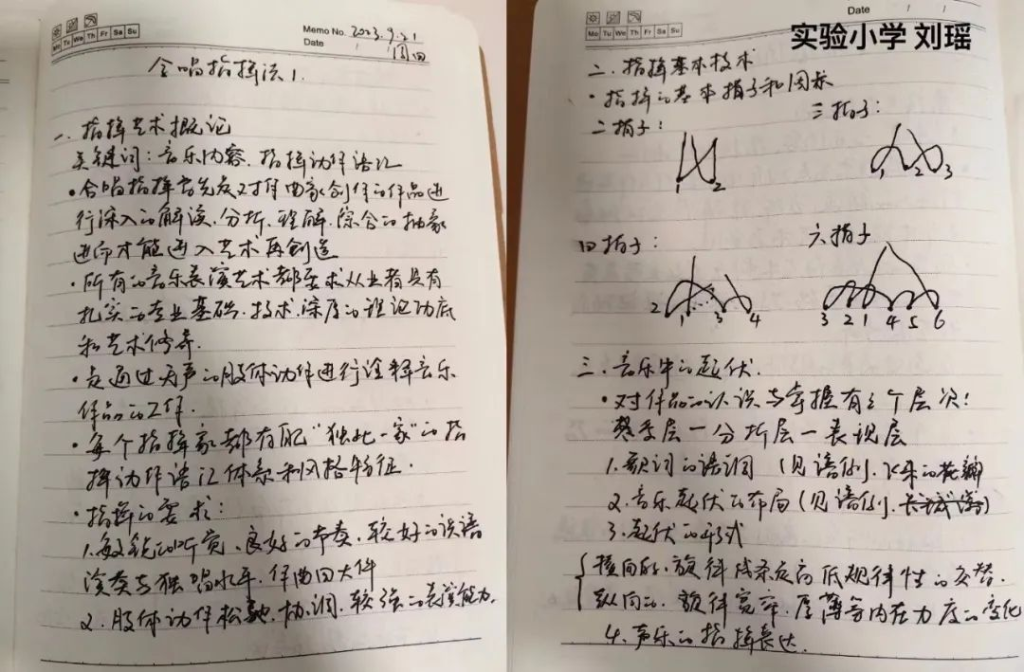 Mo Tu We Th Fr Sa Su
Memo No. 2023.9.21
Date 周四
合唱指挥法1.
一.指挥艺术概论
关键词:音乐内容.指挥动作语汇
·合唱指挥首先应对作曲家创作的作品进
行深入的解读.分析.理解.综合的抽象
进而才能进入艺术再创造
·所有的音乐表演艺术都要求从业者具有
扎实的专业基础.技术.深厚的理论功底
和艺术修养.
·是通过无声的肢体动作进行诠释音乐
作品的工作.
·每个指挥家都有配"独此一家"的指
挥动作语汇体系和风格特征.
·指挥的要求:
1.敏锐的听觉.良好的节奏.较好的识谱
演奏与独唱水平.作曲四大件
2.肢体动作松弛.协调.较强的表演能力.
Mo Tu We Th Fr Sa Su
Date / /
实验小学 刘瑶
二.指挥基本技术
·指挥的基本拍子和图标
二拍子: 三拍子:
1 2 1 2 3
四拍子: 六拍子
2 1 3 4 3 2 1 4 5 6
三.音乐中的起伏.
·对作品的认识与掌握有三个层次:
熟悉层一分析层一表现层
1.歌词的语调 (见谱例.飞来的花瓣
2.音乐起伏的布局(见谱例.长城谣)
3.起伏的形式
横向的.旋律线条高低规律性的交替.
纵向的.旋律宽窄.厚薄等内在力度的变化
4.声乐的指挥表达.